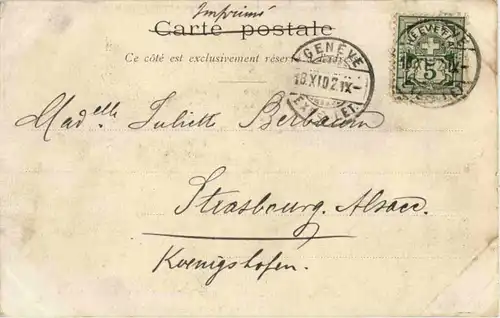 Imprimé
Carte postale
Ce côté est exclusivement réservé
GENÈVE
18.XI.02.IX-
5
Mad.elle Juliette Berbaum
Strasbourg. Alsace.
Koenigshofen.